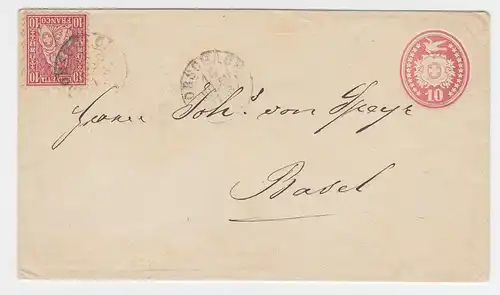 FRANCO
10 10
HELVETIA
RORSCHACH
10
Herrn Joh.s von Speyr
Basel